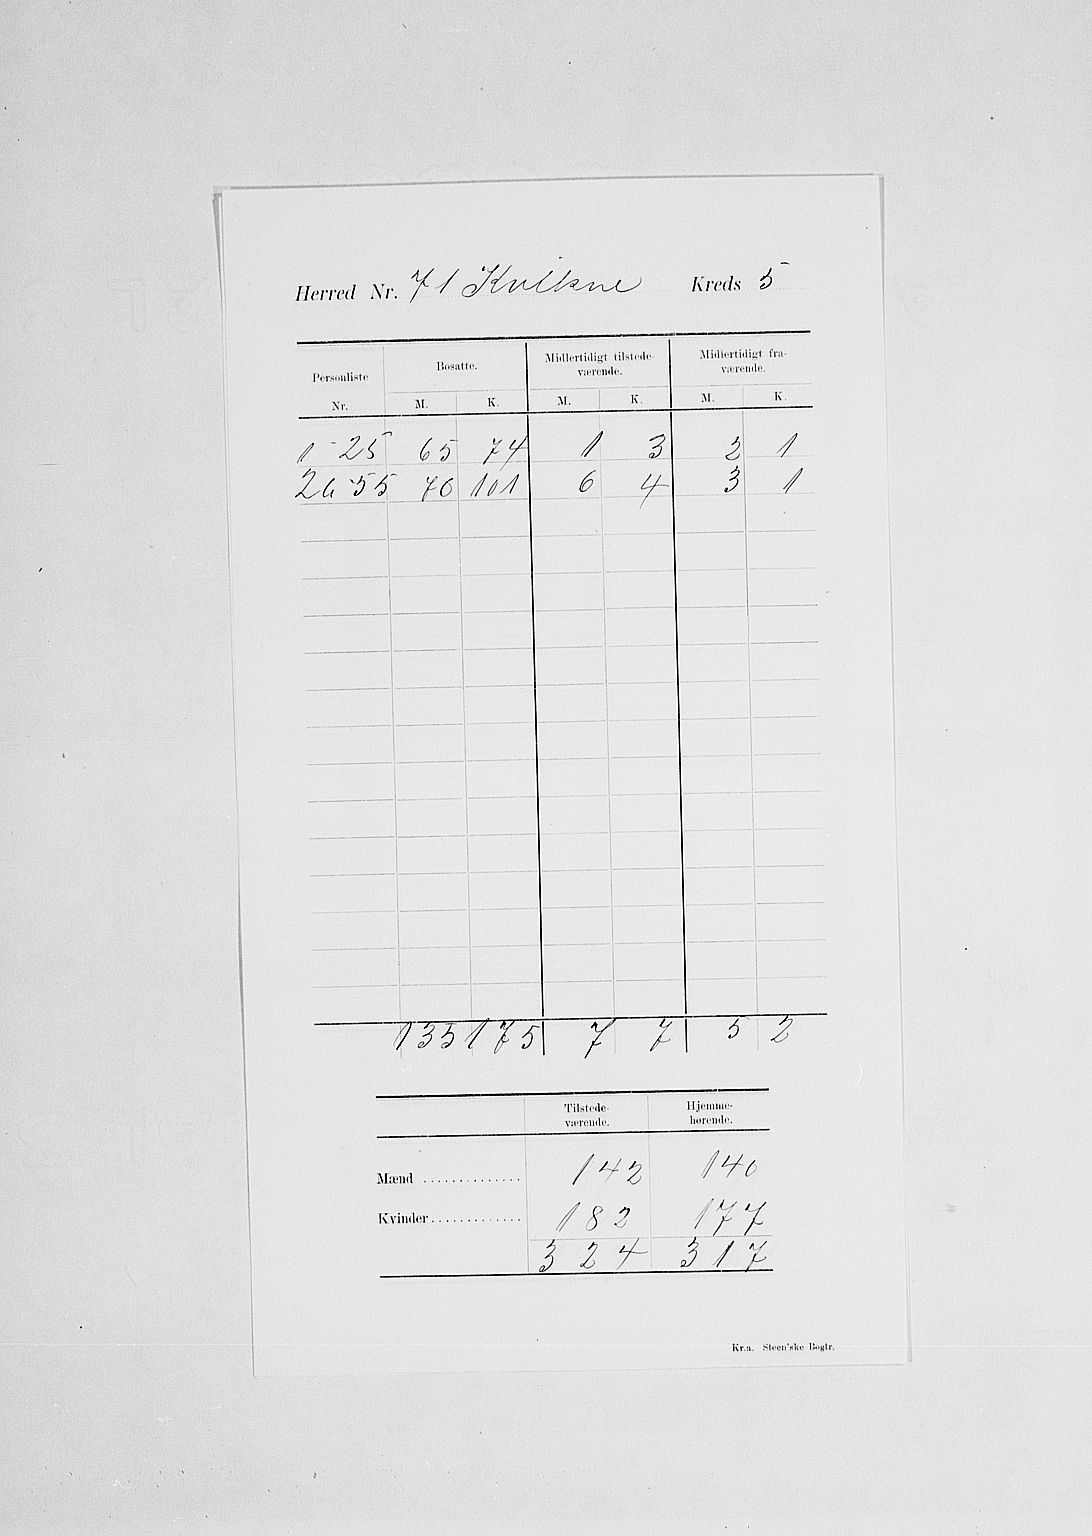 Herred Nr. 71 Kvikne Kreds 5
Personliste Nr. Bosatte. Midlertidigt tilstede- værende. Midlertidigt fra- værende.
M. K. M. K. M. K.
1-25 65 74 1 3 2 1
26-55 70 101 6 4 3 1
135 175 7 7 5 2
Tilstede- værende. Hjemme- hørende.
Mænd .............. 142 140
Kvinder............. 182 177
324 317
Kr.a. Steen'ske Bogtr.